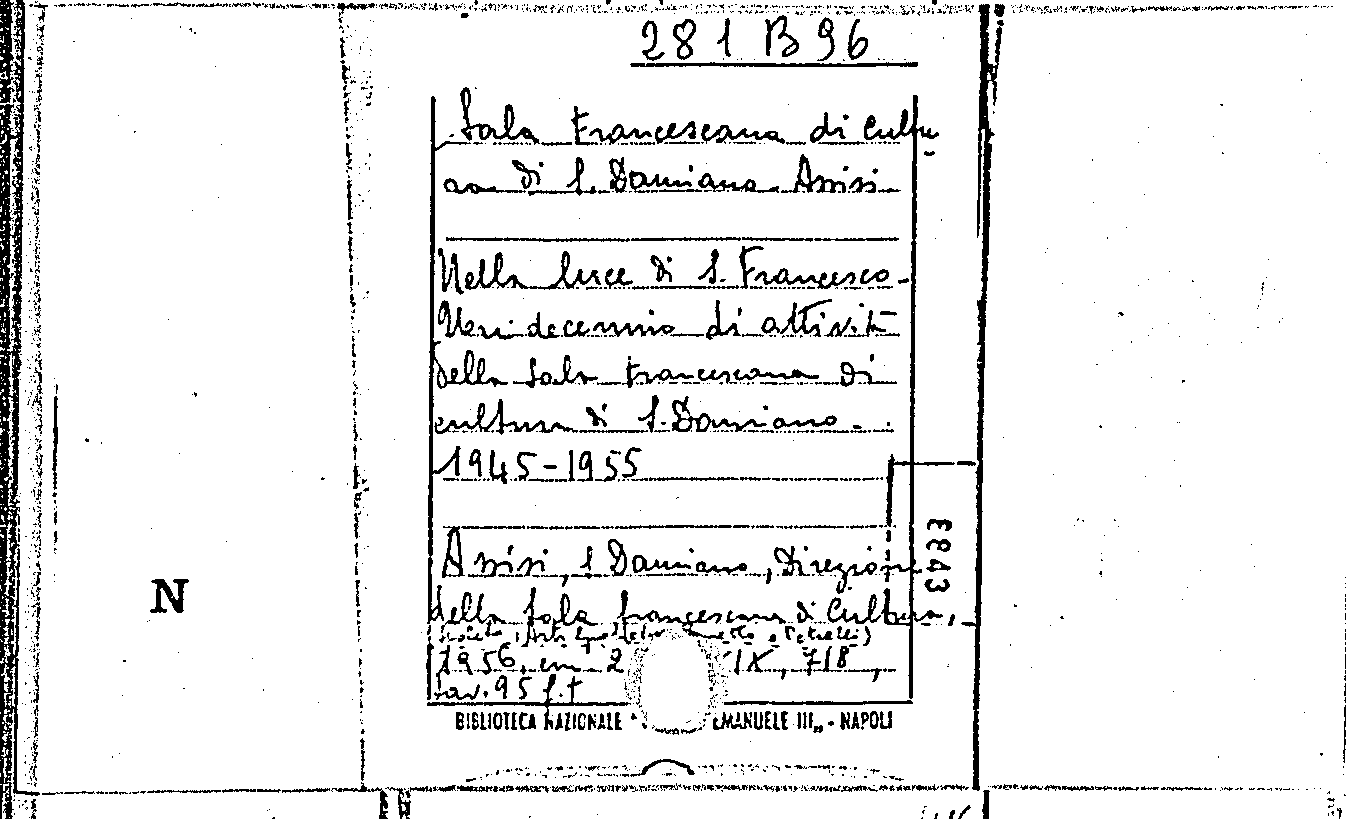 281 B 96
Sala Francescana di Cultu-
ra di S. Damiano. Assisi.
Nella luce di S. Francesco.
Un decennio di attività
della Sala Francescana di
cultura di S. Damiano.
1945-1955
Assisi, S. Damiano, Direzione
della Sala francescana di Cultura,
1956, cm 2 IX, 718,
tav. 95 f.t
BIBLIOTECA NAZIONALE " EMANUELE III„ - NAPOLI
E8843
N